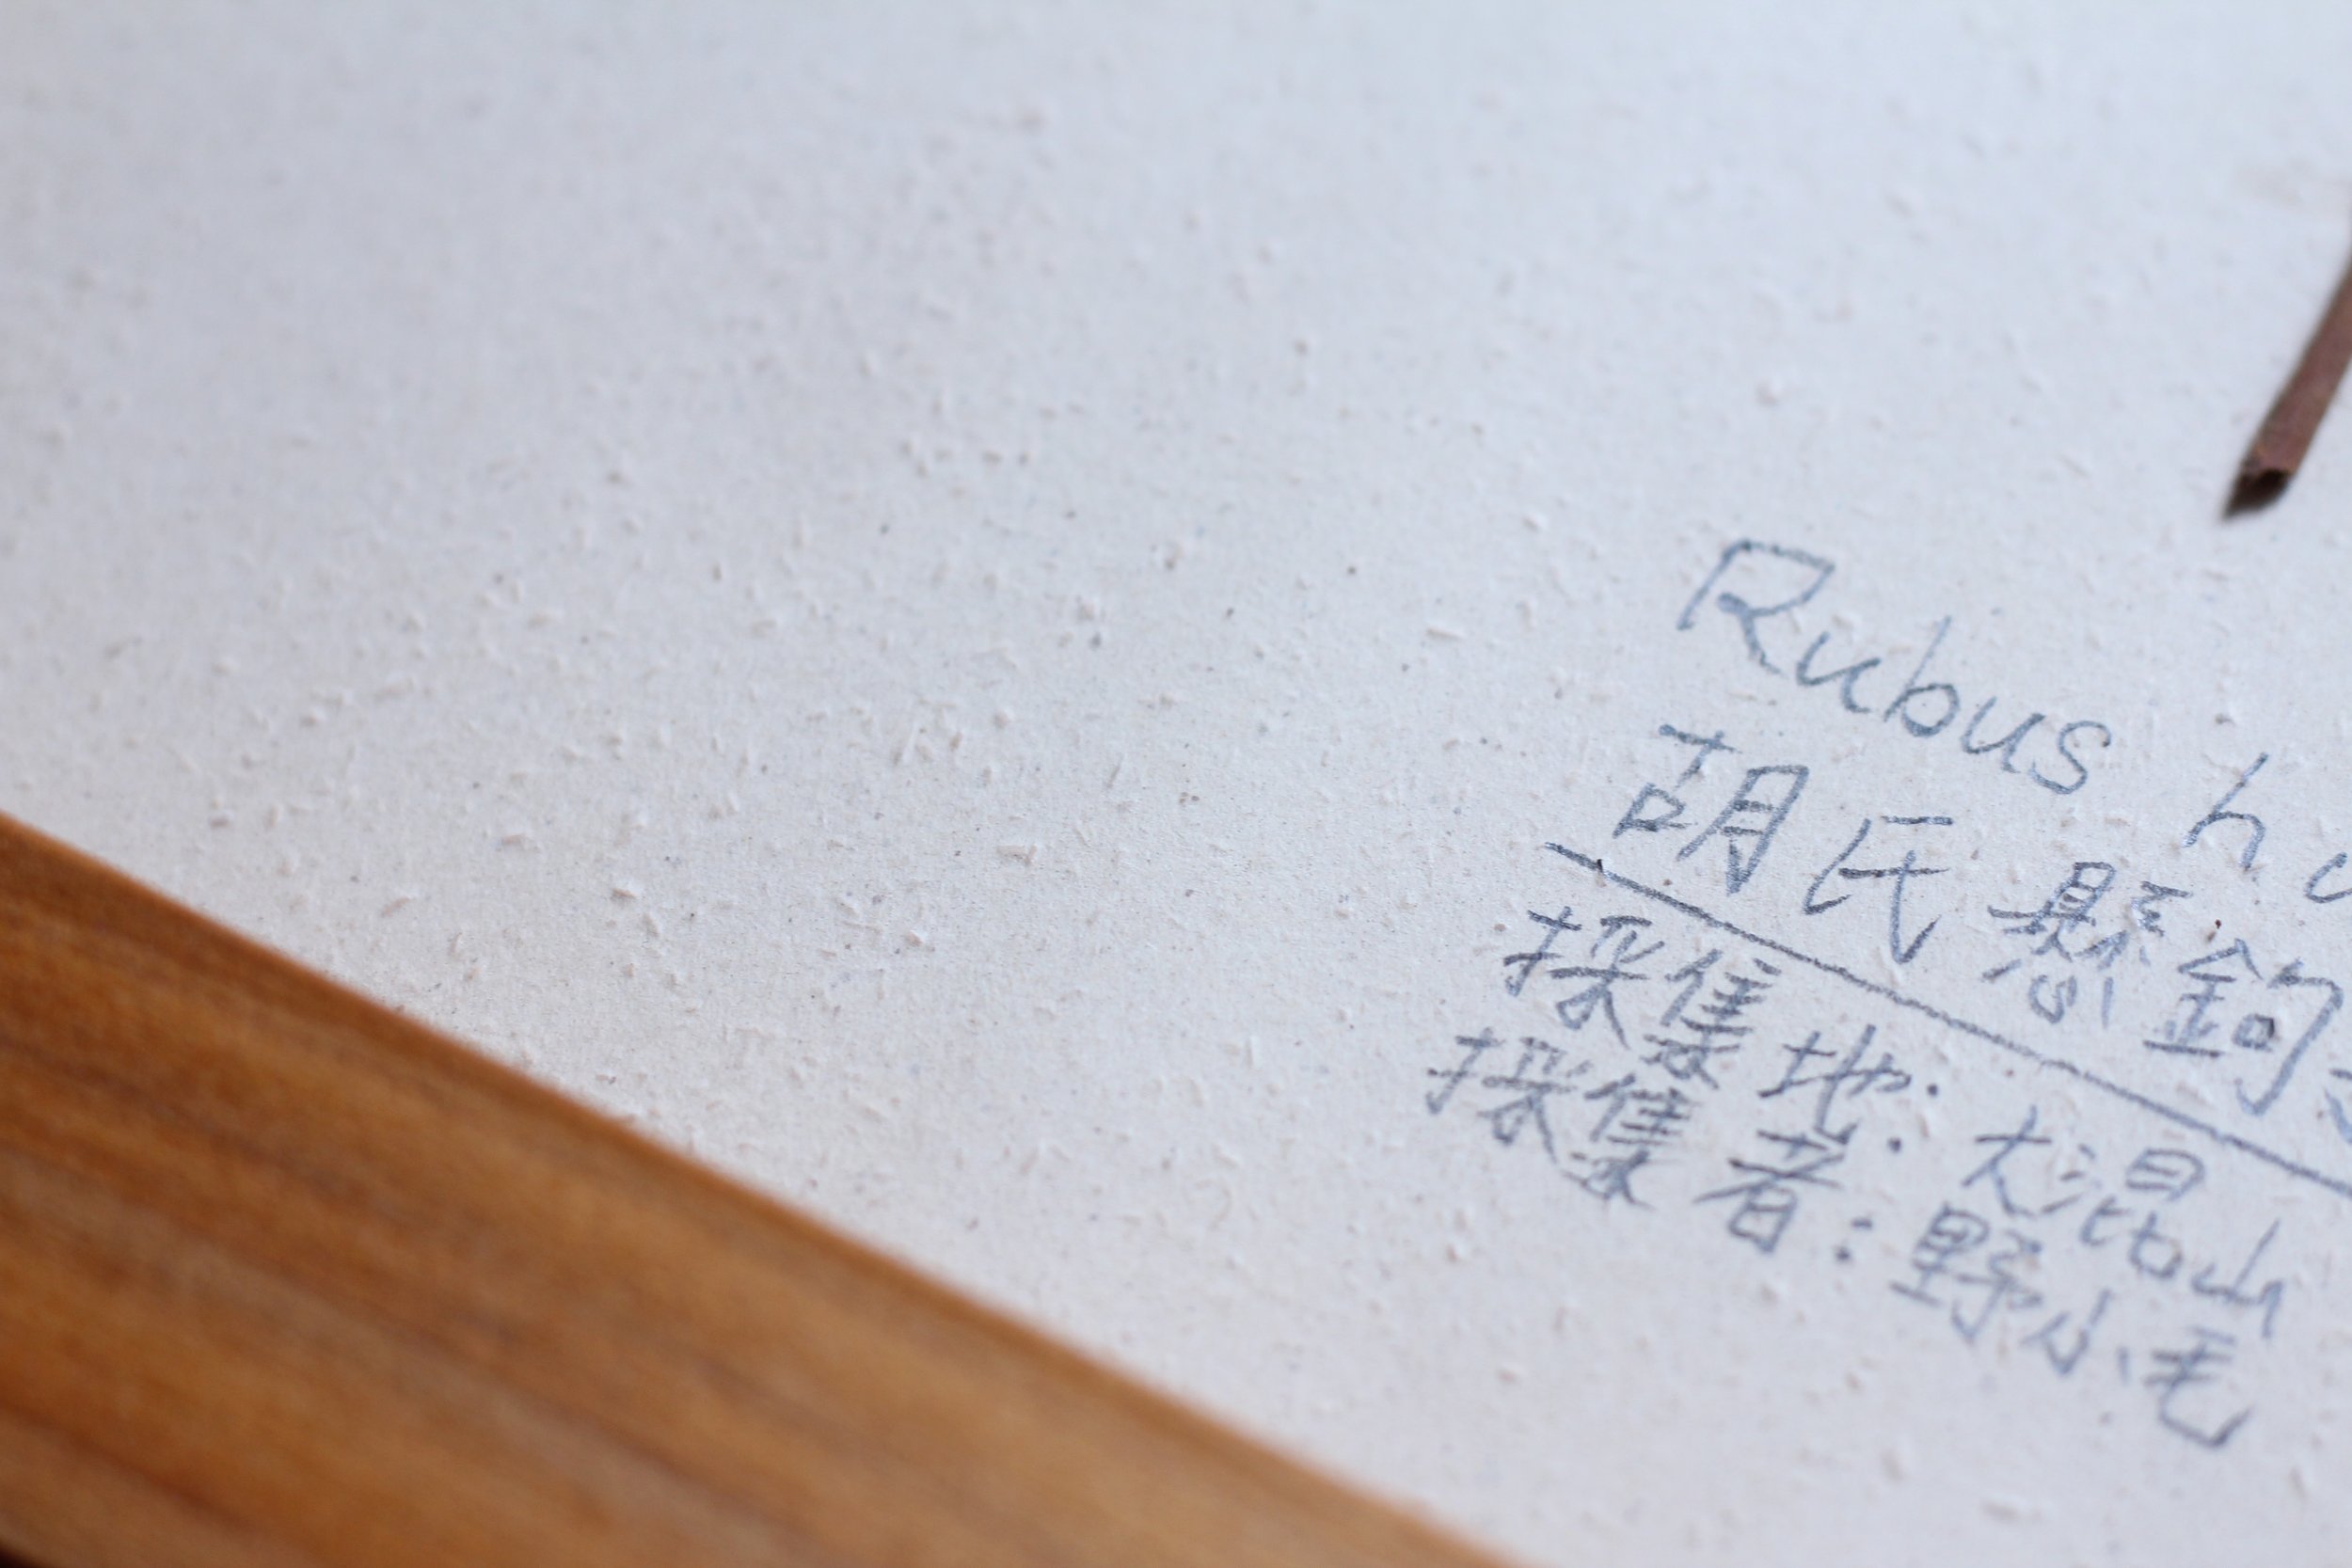 Rubus hu
胡氏懸鉤
採集地: 大混山
採集者: 野小毛